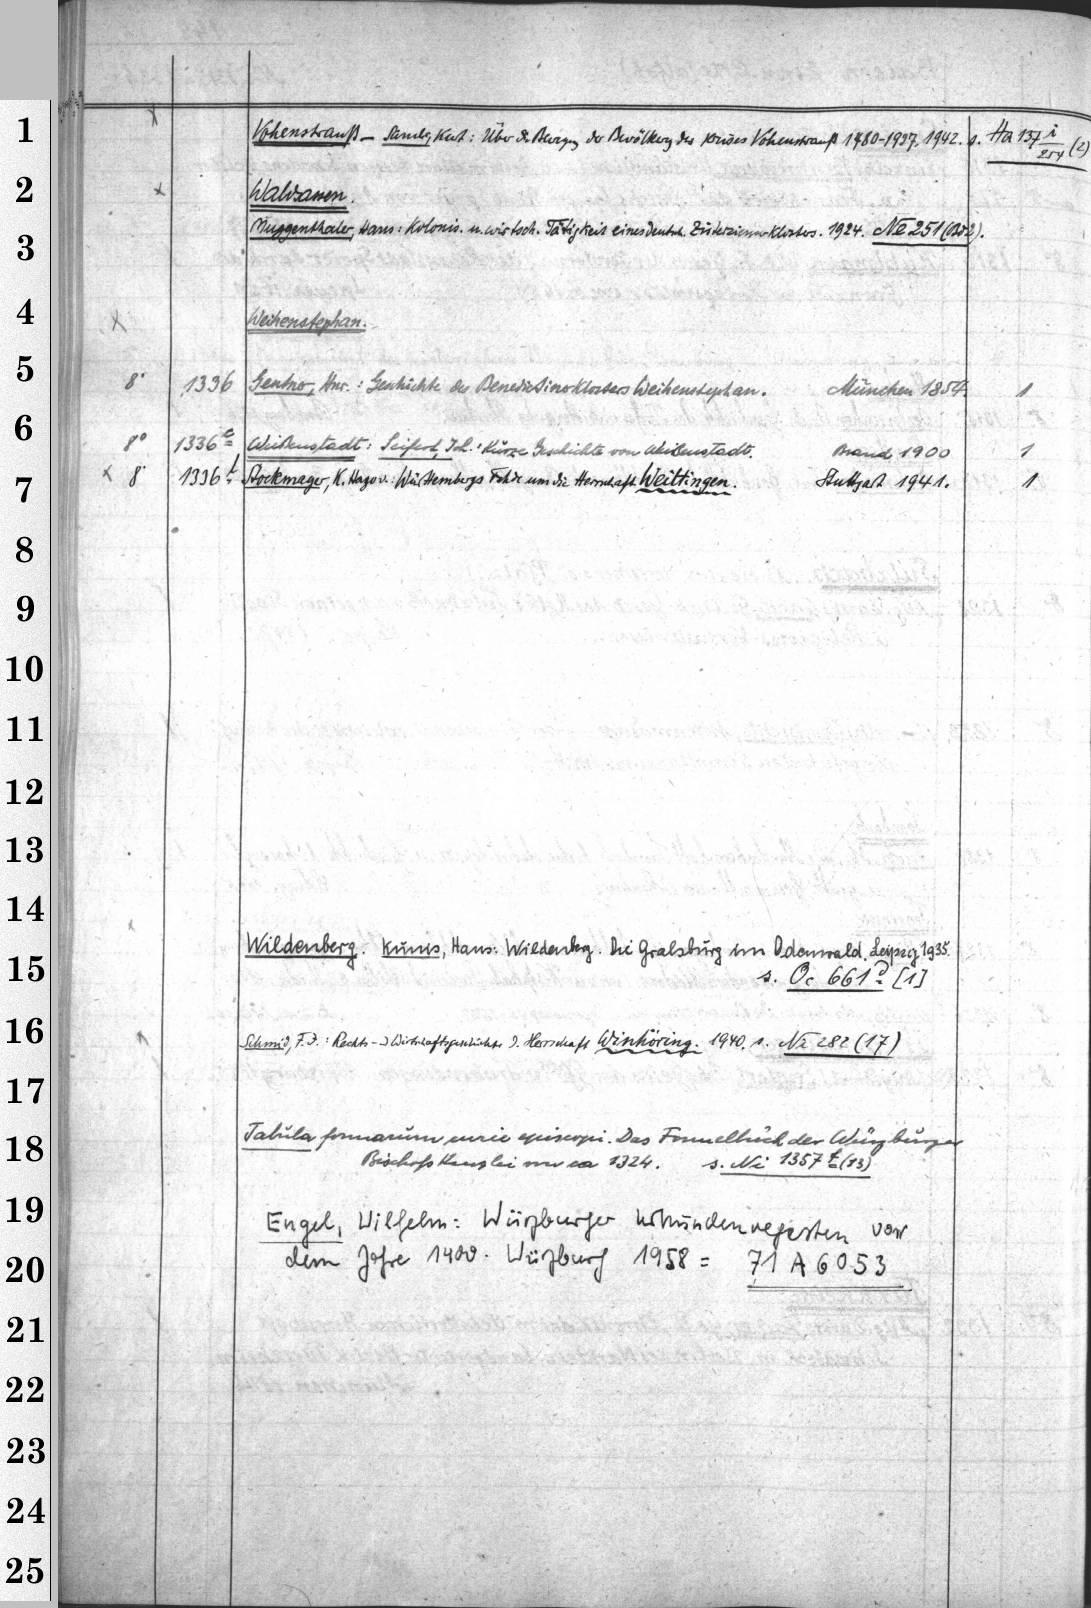 1
2
3
4
5
6
7
8
9
10
11
12
13
14
15
16
17
18
19
20
21
22
23
24
25
Vohenstrauß – Kurt: Über d. Bewegg der Bevölkerg des Kreises Vohenstrauß 1480-1937. 1942. s. Ha 137 i/254 (2)
Waldsassen.
Muggenthaler, Hans: Kolonis. u. wirtsch. Tätigkeit eines deutsch. Zisterzienserklosters. 1924. Ne 251 (Bd 2).
Weihenstephan.
8° 1336 Gentner, Hnr.: Geschichte des Benedictinerklosters Weihenstephan. München 1854. 1
8° 1336 e Weißenstadt: Seifert, Joh.: Kurze Geschichte von Weißenstadt. Brand 1900 1
x 8° 1336 f Stockmayer, K. Hugo v.: Württembergs Fehde um die Herrschaft Weittingen. Stuttgart 1941. 1
Wildenberg. Kunis, Hans: Wildenberg. Die Gralsburg im Odenwald. Leipzig 1935.
s. Oc 661 d [1]
Schmid, F. J.: Rechts- u Wirtschaftsgeschichte d. Herrschaft Winhöring. 1940. s. Ni 282 (17)
Tabula formarum curie episcopi. Das Formelbuch der Würzburger
Bischofskanzlei von ca 1324. s. Ni 1357 f (13)
Engel, Wilhelm: Würzburger Urkundenregesten vor
dem Jahre 1400. Würzburg 1958 = 71 A 6053